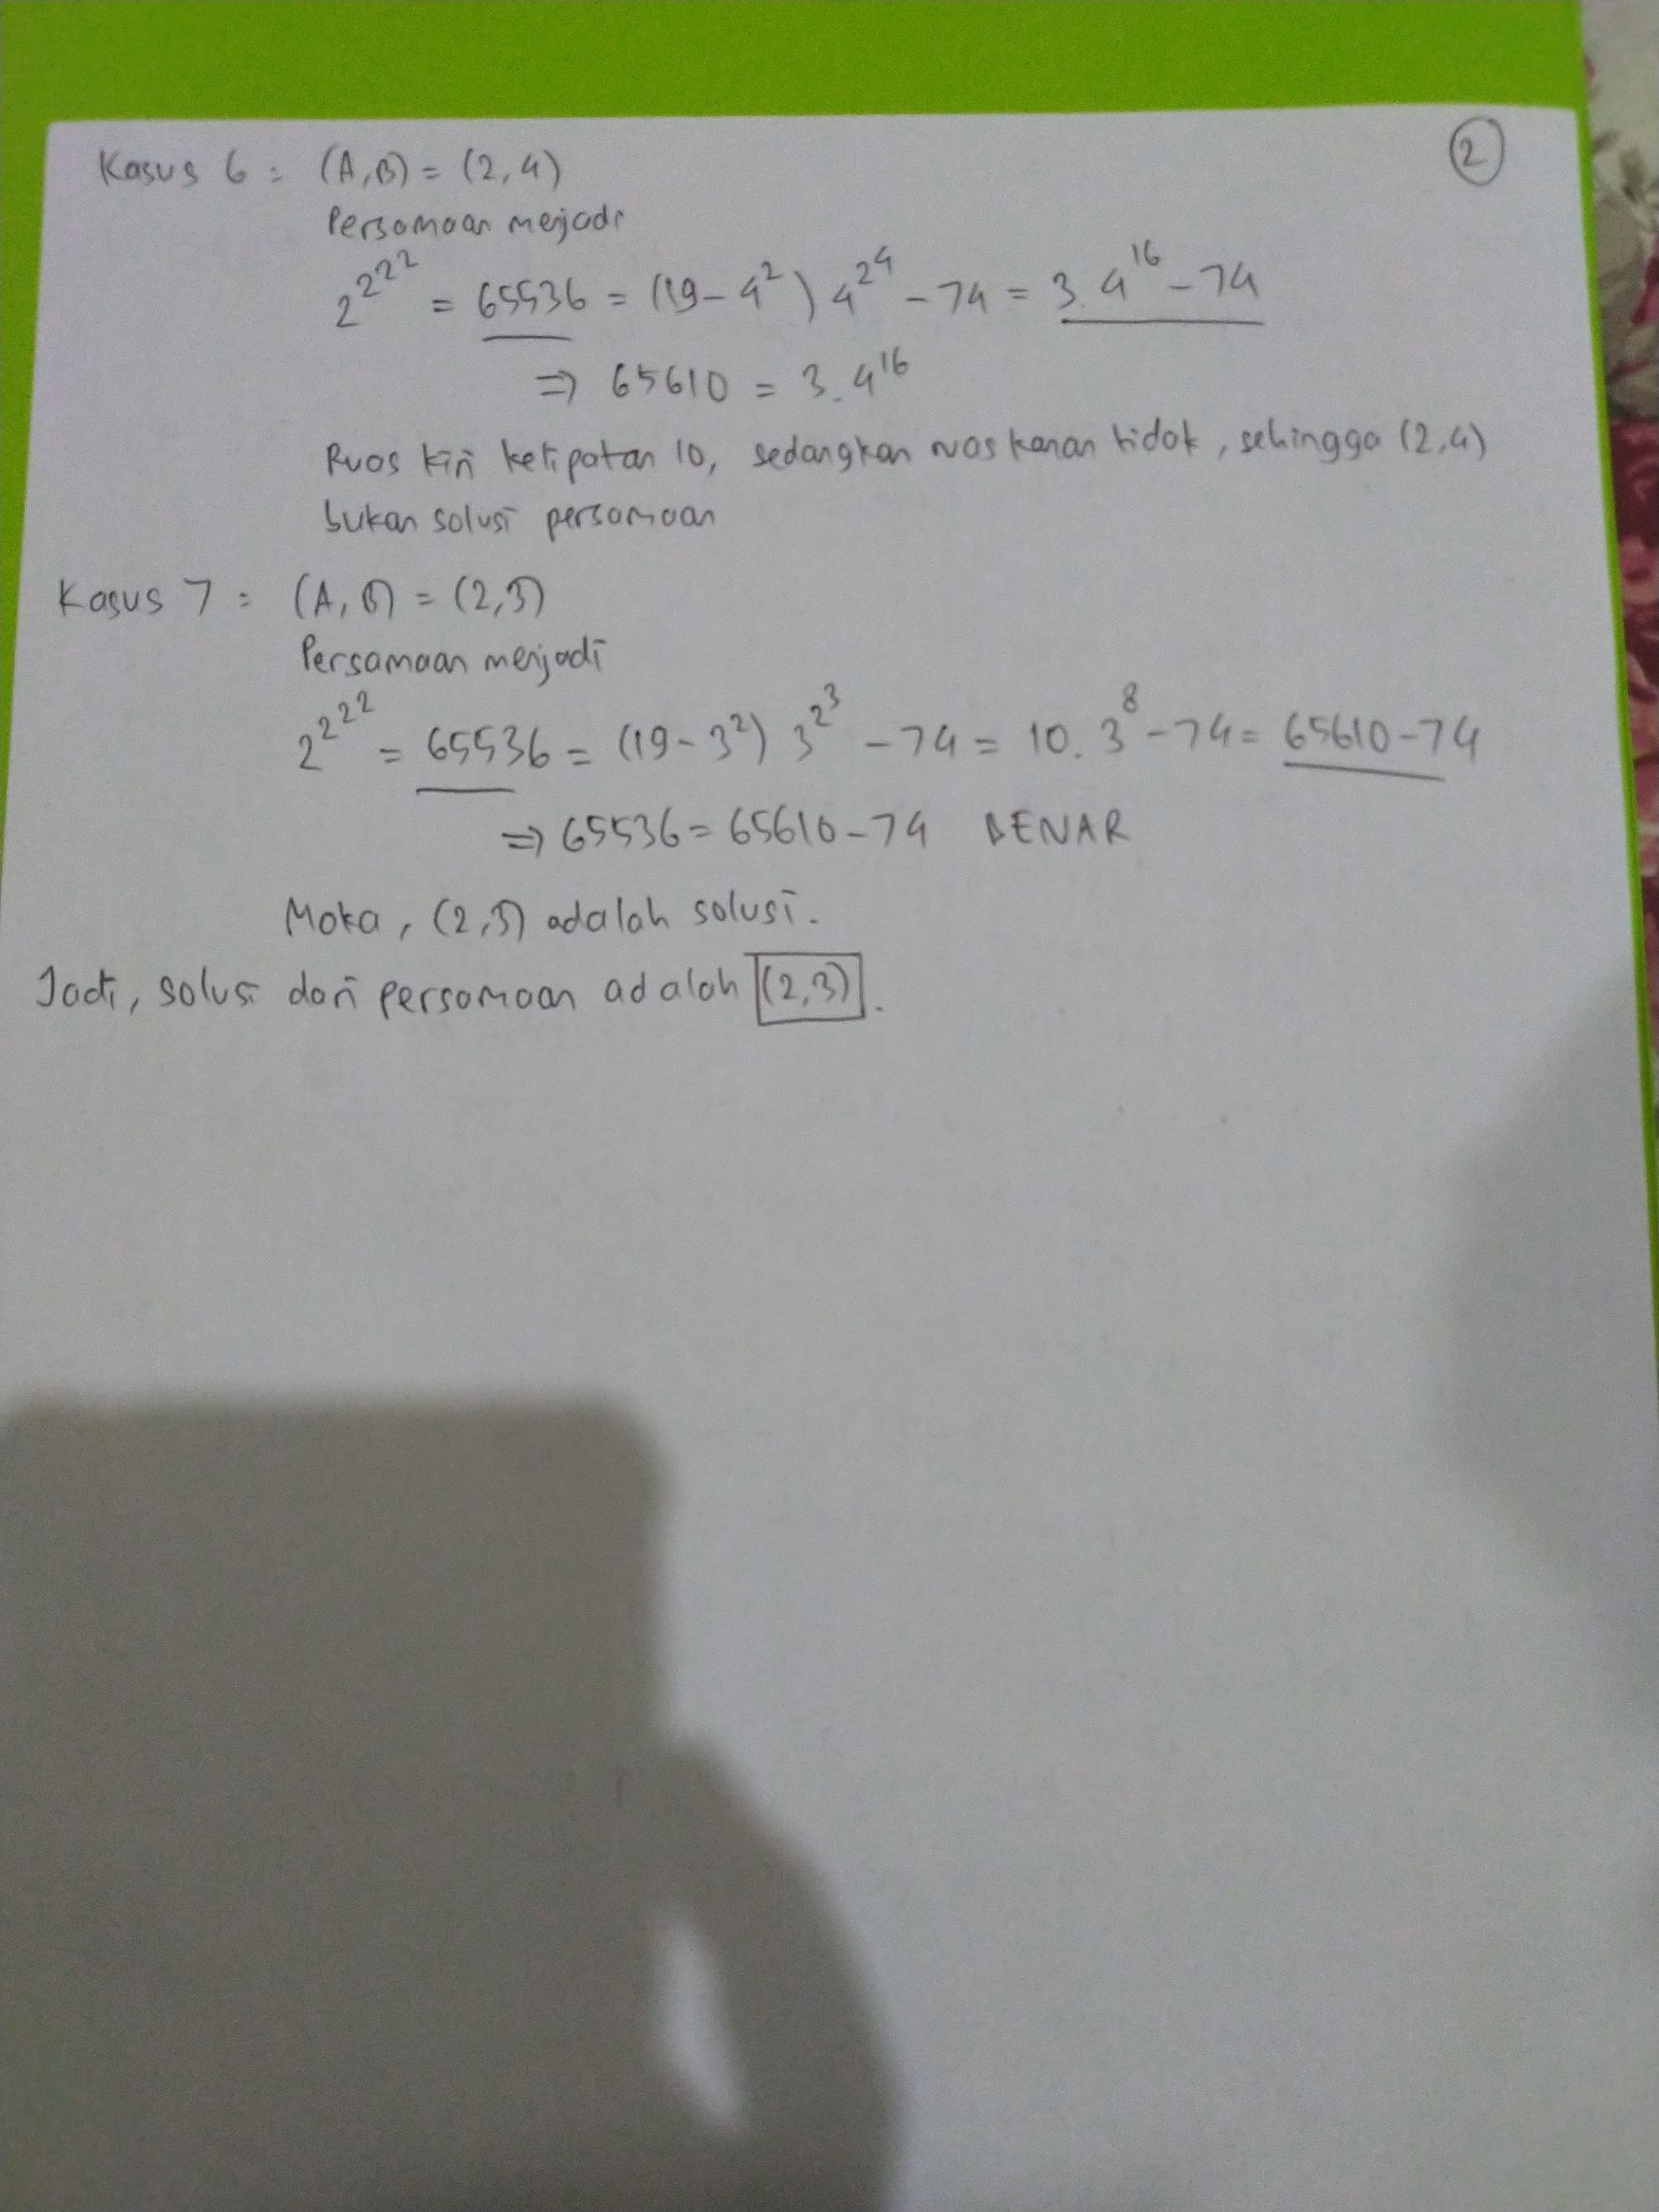 ②
Kasus 6 : (A,B) = (2,4)
Persamaan menjadi
2^2^2^2 = 65536 = (19-4^2) 4^2^4 - 74 = 3.4^16 - 74
⇒ 65610 = 3.4^16
Ruas kiri kelipatan 10, sedangkan ruas kanan tidak, sehingga (2,4)
bukan solusi persamaan
Kasus 7 : (A,B) = (2,3)
Persamaan menjadi
2^2^2^2 = 65536 = (19-3^2) 3^2^3 - 74 = 10.3^8 - 74 = 65610-74
⇒ 65536 = 65610-74 BENAR
Maka, (2,3) adalah solusi.
Jadi, solusi dari persamaan adalah (2,3).